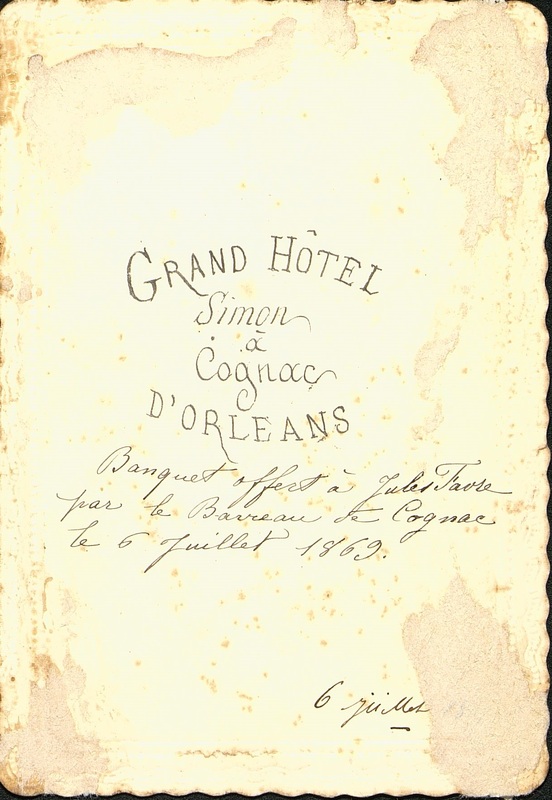 GRAND HÔTEL
Simon
à
Cognac
D'ORLEANS
Banquet offert à Jules Favre
par le Barreau de Cognac
le 6 Juillet 1869.
6 juillet